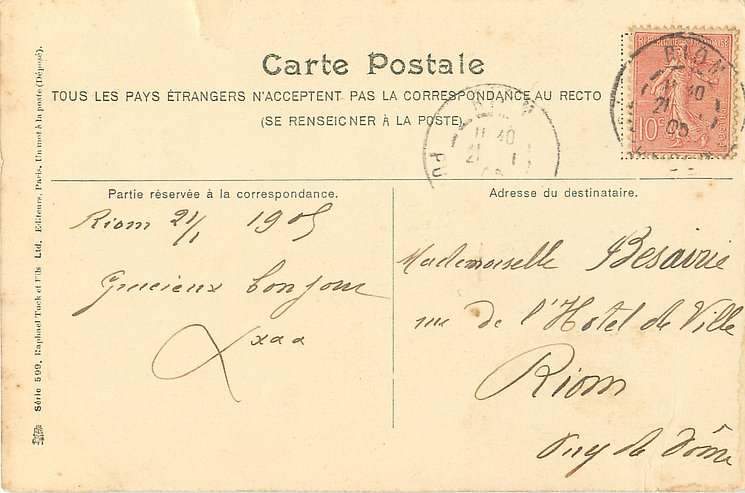 Carte Postale
TOUS LES PAYS ÉTRANGERS N'ACCEPTENT PAS LA CORRESPONDANCE AU RECTO
(SE RENSEIGNER À LA POSTE)
RIOM
11 40
21 1
05
PUY
10c
POSTES
RIOM
11 40
21 1
05
PUY
Partie réservée à la correspondance.
Riom 21/1 1905
Gracieux bonjour
Xxaa
Adresse du destinataire.
Mademoiselle Besairie
rue de l'Hotel de Ville
Riom
Puy de Dôme
Série 599. Raphael Tuck et Fils Ltd, Editeurs, Paris, Un mot à la poste (Déposé).